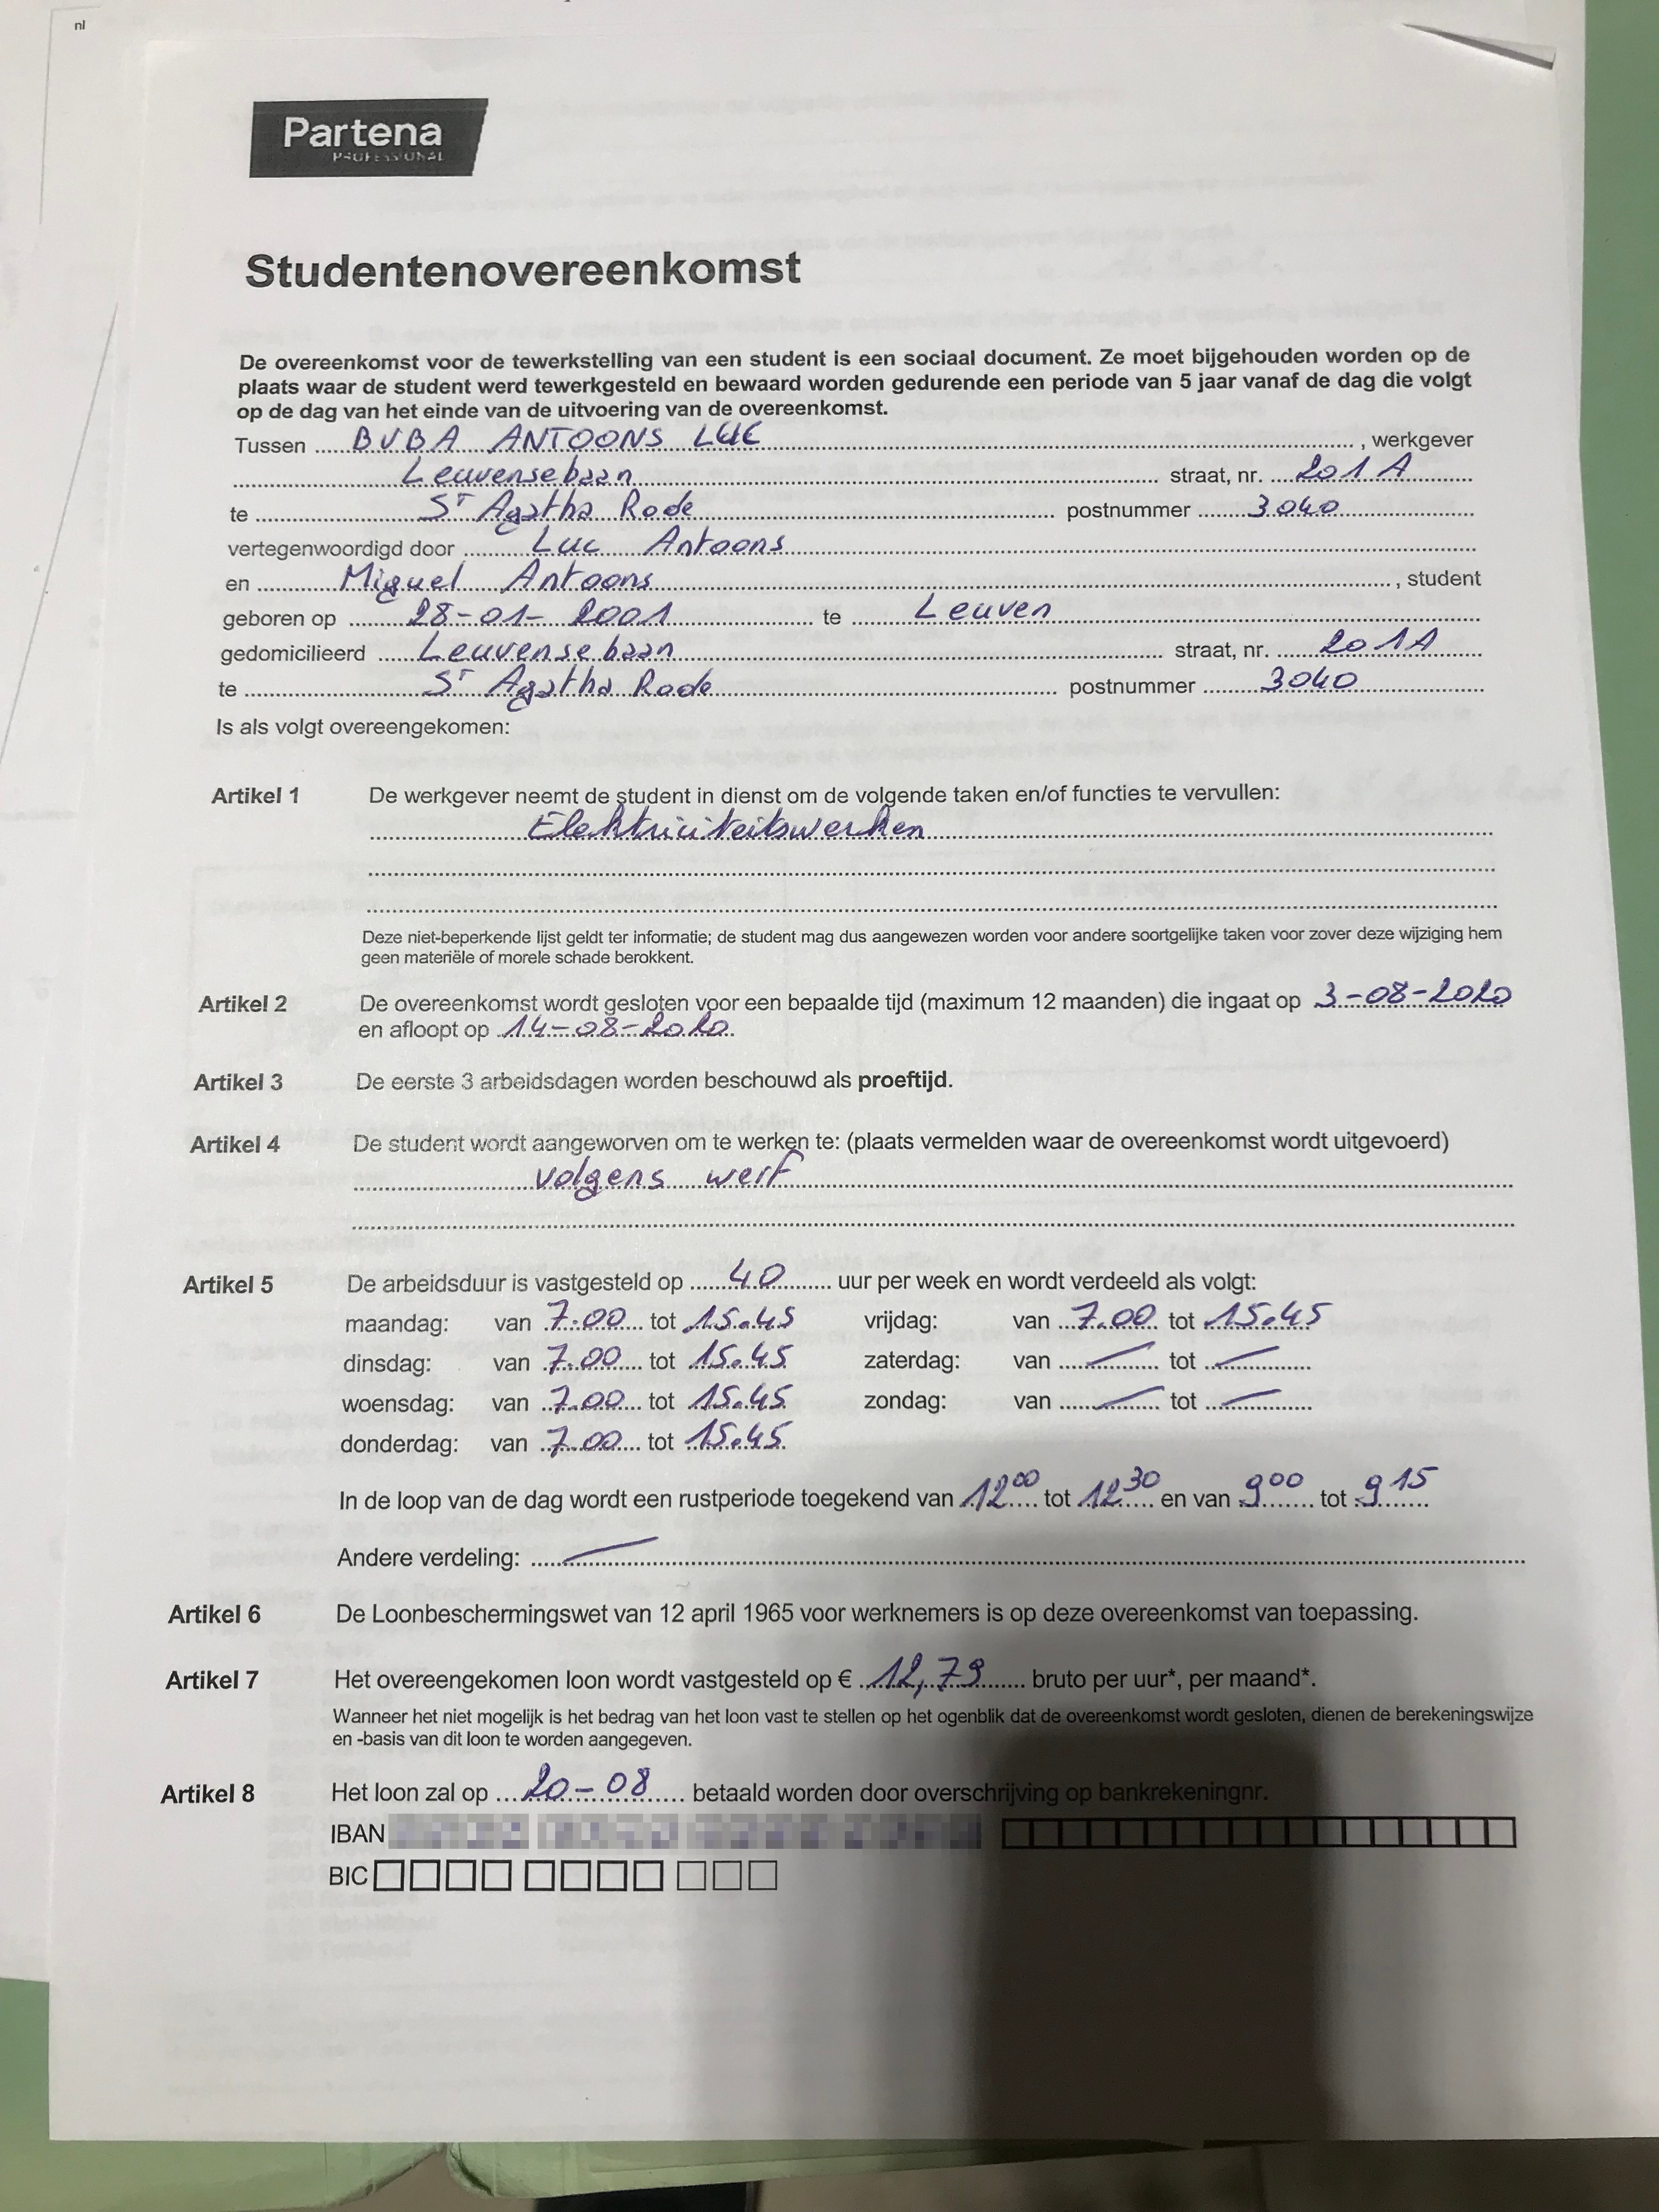 nl
Partena
PROFESSIONAL
Studentenovereenkomst
De overeenkomst voor de tewerkstelling van een student is een sociaal document. Ze moet bijgehouden worden op de
plaats waar de student werd tewerkgesteld en bewaard worden gedurende een periode van 5 jaar vanaf de dag die volgt
op de dag van het einde van de uitvoering van de overeenkomst.
Tussen BVBA ANTOONS LUC , werkgever
Leuvensebaan straat, nr. 201A
te ST Agatha Rode postnummer 3040
vertegenwoordigd door Luc Antoons
en Miguel Antoons , student
geboren op 28-01-2001 te Leuven
gedomicilieerd Leuvensebaan straat, nr. 201A
te ST Agatha Rode postnummer 3040
Is als volgt overeengekomen:
Artikel 1 De werkgever neemt de student in dienst om de volgende taken en/of functies te vervullen:
Elektriciteitswerken
Deze niet-beperkende lijst geldt ter informatie; de student mag dus aangewezen worden voor andere soortgelijke taken voor zover deze wijziging hem
geen materiële of morele schade berokkent.
Artikel 2 De overeenkomst wordt gesloten voor een bepaalde tijd (maximum 12 maanden) die ingaat op 3-08-2020
en afloopt op 14-08-2020.
Artikel 3 De eerste 3 arbeidsdagen worden beschouwd als proeftijd.
Artikel 4 De student wordt aangeworven om te werken te: (plaats vermelden waar de overeenkomst wordt uitgevoerd)
volgens werf
Artikel 5 De arbeidsduur is vastgesteld op 40 uur per week en wordt verdeeld als volgt:
maandag: van 7.00 tot 15.45 vrijdag: van 7.00 tot 15.45
dinsdag: van 7.00 tot 15.45 zaterdag: van — tot —
woensdag: van 7.00 tot 15.45 zondag: van — tot —
donderdag: van 7.00 tot 15.45
In de loop van de dag wordt een rustperiode toegekend van 12 00 tot 12 30 en van 9 00 tot 9 15
Andere verdeling: —
Artikel 6 De Loonbeschermingswet van 12 april 1965 voor werknemers is op deze overeenkomst van toepassing.
Artikel 7 Het overeengekomen loon wordt vastgesteld op € 12,79 bruto per uur*, per maand*.
Wanneer het niet mogelijk is het bedrag van het loon vast te stellen op het ogenblik dat de overeenkomst wordt gesloten, dienen de berekeningswijze
en -basis van dit loon te worden aangegeven.
Artikel 8 Het loon zal op 20-08 betaald worden door overschrijving op bankrekeningnr.
IBAN
BIC